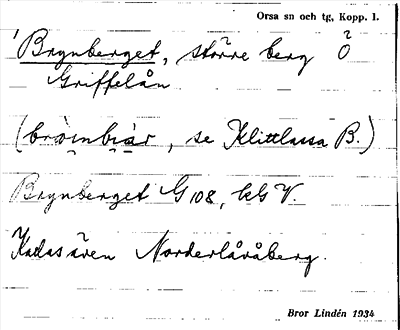 Orsa sn och tg, Kopp. l.
Brynberget, större berg Ö
Griffelån
(bròmbiàr, se Klittlassa B.)
Brynberget G 108, kG V.
Kallas även Norderlåråberg.
Bror Lindén 1934